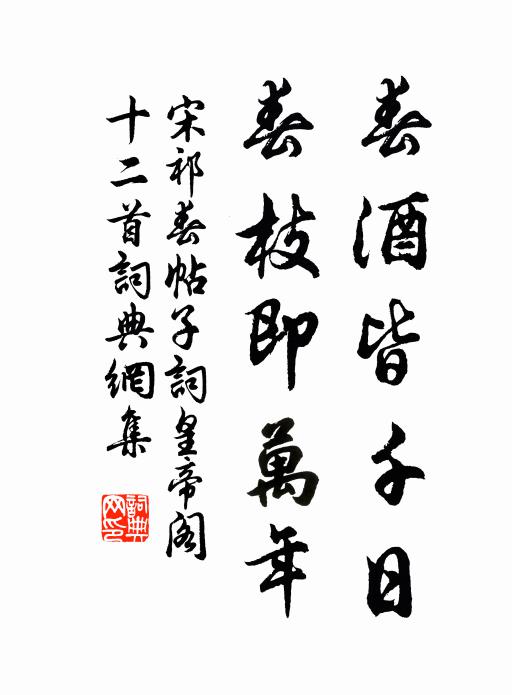 春酒皆千日
春枝即萬年
宋祁春帖子詞皇帝閣
十二首詞典網集
詞典網印